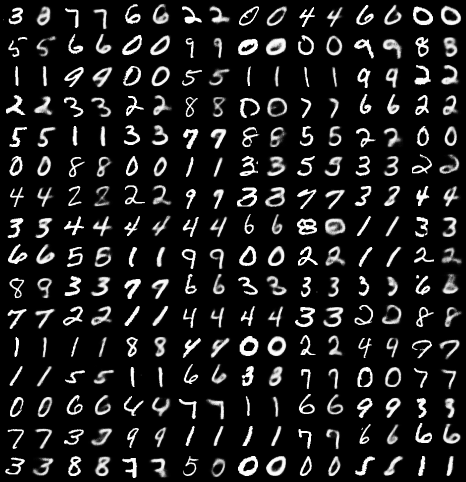 3 8 7 7 6 6 2 2 0 0 4 4 6 6 0 0
5 5 6 6 0 0 9 9 0 0 0 0 9 9 8 8
1 1 9 9 0 0 5 5 1 1 1 1 9 9 2 2
2 2 3 3 2 2 8 8 0 0 7 7 6 6 2 2
5 5 1 1 3 3 7 7 8 8 5 5 2 2 0 0
0 0 8 8 0 0 1 1 3 3 5 5 3 3 2 2
4 4 2 2 2 2 9 9 3 3 7 7 3 8 4 4
3 3 4 4 4 4 4 4 6 6 8 0 1 1 3 3
6 6 5 5 1 1 9 9 0 0 2 2 1 1 2 2
8 9 3 3 7 7 6 6 3 3 3 3 3 3 6
7 7 2 2 1 1 4 4 4 4 3 3 2 2 8 8
1 1 1 1 8 8 4 4 0 0 2 2 4 9 9 7
1 1 5 5 1 1 6 6 3 8 7 7 0 0 7 7
0 0 6 6 4 4 7 7 1 1 6 6 9 9 3 3
7 7 3 3 9 9 1 1 1 1 7 9 6 6 6 6
3 3 8 8 7 7 5 0 0 0 0 0 5 5 1 1